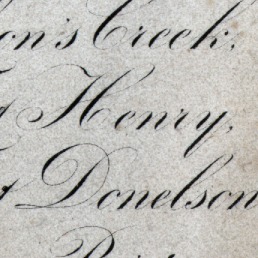 on's Creek,
Henry,
Donelson